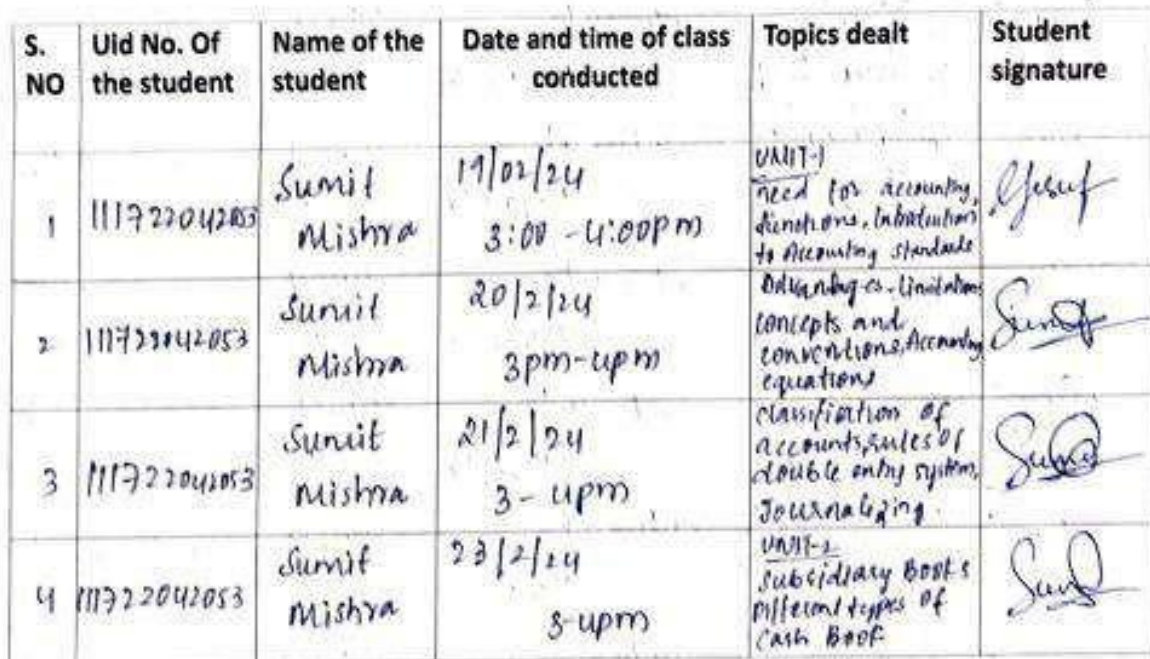 S. NO
Uid No. Of the student
Name of the student
Date and time of class conducted
Topics dealt
Student signature
1
111722042053
Sumit
Mishra
19/02/24
3:00 - 4:00pm
UNIT-1
need for accounting,
functions, Introduction
to Accounting standards
2
111722042053
Sumit
Mishra
20/2/24
3pm-4pm
Advantages, limitations
concepts and
conventions, Accounting
equations
Sumit
3
111722042053
Sumit
Mishra
21/2/24
3-4pm
classification of
accounts, rules of
double entry system,
Journalizing.
Sumit
4
111722042053
Sumit
Mishra
23/2/24
3-4pm
UNIT-2
Subsidiary Books
Different types of
Cash Book